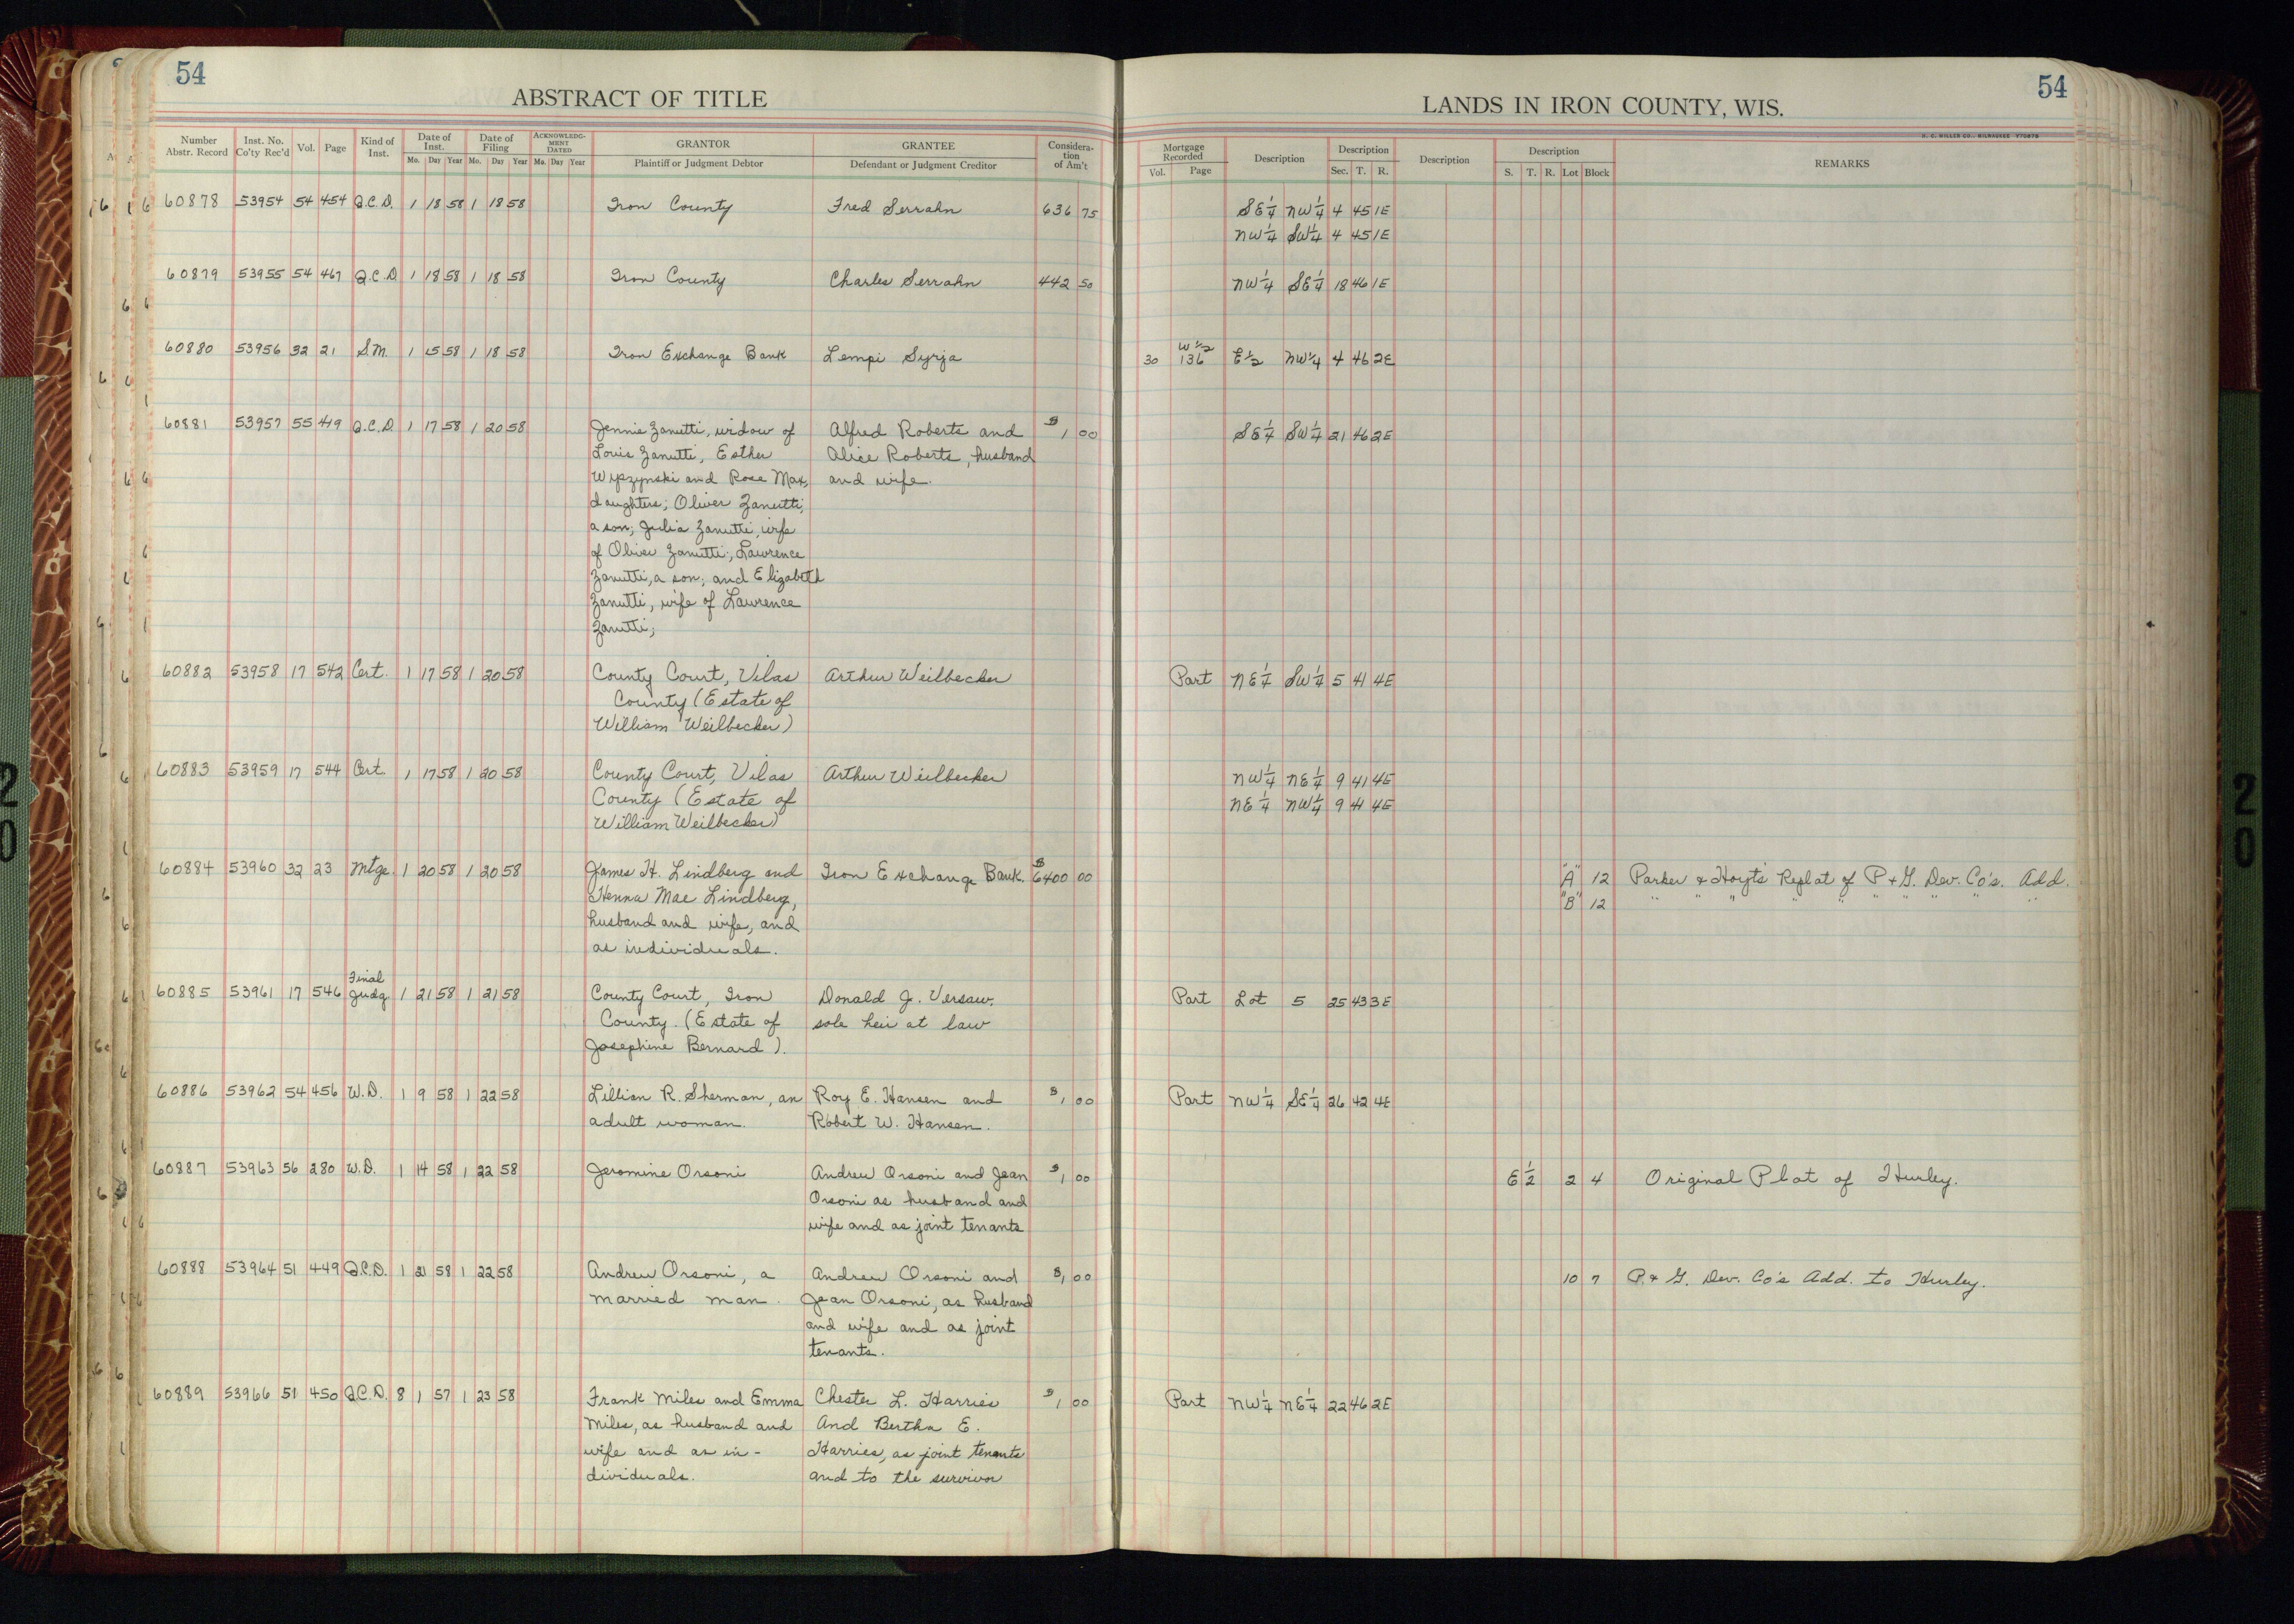 54
ABSTRACT OF TITLE
Number Abstr. Record Inst. No. Co'ty Rec'd Vol. Page Kind of Inst. Date of Inst. Mo. Day Year Date of Filing Mo. Day Year ACKNOWLEDG-MENT DATED Mo. Day Year GRANTOR Plaintiff or Judgment Debtor GRANTEE Defendant or Judgment Creditor Considera-tion of Am't
54
LANDS IN IRON COUNTY, WIS.
H. C. MILLER CO., MILWAUKEE Y70878
Mortgage Recorded Vol. Page Description Description Sec. T. R. Description Description S. T. R. Lot Block REMARKS
60878 53954 54 454 Q.C.D. 1 18 58 1 18 58 Iron County Fred Serrahn 636 75 SE¼ NW¼ 4 45 1E
NW¼ SW¼ 4 45 1E
60879 53955 54 467 Q.C.D 1 18 58 1 18 58 Iron County Charles Serrahn 442 50 NW¼ SE¼ 18 46 1E
60880 53956 32 21 S.M. 1 15 58 1 18 58 Iron Exchange Bank Lempi Syrja 30 136 W½ E½ NW¼ 4 46 2E
60881 53957 55 419 Q.C.D 1 17 58 1 20 58 Jennie Zanutti, widow of Alfred Roberts and $1 00 SE¼ SW¼ 21 46 2E
Louis Zanutti, Esther Alice Roberts, husband
Wyszynski and Rose Max, and wife.
daughters; Oliver Zanutti,
a son; Julia Zanutti, wife
of Oliver Zanutti; Lawrence
Zanutti, a son; and Elizabeth
Zanutti, wife of Lawrence
Zanutti;
60882 53958 17 542 Cert. 1 17 58 1 20 58 County Court, Vilas Arthur Weilbecker Part NE¼ SW¼ 5 41 4E
County (Estate of
William Weilbecker)
60883 53959 17 544 Cert. 1 17 58 1 20 58 County Court, Vilas Arthur Weilbecker NW¼ NE¼ 9 41 4E
County (Estate of NE¼ NW¼ 9 41 4E
William Weilbecker)
60884 53960 32 23 Mtge. 1 20 58 1 20 58 James H. Lindberg and Iron Exchange Bank. $6400 00 "A" 12 Parker & Hoyt's Replat of P & G. Dev. Co's. Add.
Henna Mae Lindberg, "B" 12 " " " " " " " " "
husband and wife, and
as individuals.
60885 53961 17 546 Final Judg. 1 21 58 1 21 58 County Court, Iron Donald J. Versaw. Part Lot 5 25 43 3E
County. (Estate of sole heir at law
Josephine Bernard).
60886 53962 54 456 W.D. 1 9 58 1 22 58 Lillian R. Sherman, an Roy E. Hansen and $1 00 Part NW¼ SE¼ 26 42 4E
adult woman. Robert W. Hansen.
60887 53963 56 280 W.D. 1 14 58 1 22 58 Jeromine Orsoni Andrew Orsoni and Jean $1 00 E½ 2 4 Original Plat of Hurley.
Orsoni as husband and
wife and as joint tenants
60888 53964 51 449 Q.C.D. 1 21 58 1 22 58 Andrew Orsoni, a Andrew Orsoni and $1 00 10 7 P. & G. Dev. Co's Add. to Hurley.
married man. Jean Orsoni, as husband
and wife and as joint
tenants.
60889 53966 51 450 Q.C.D. 8 1 57 1 23 58 Frank Miles and Emma Chester L. Harries $1 00 Part NW¼ NE¼ 22 46 2E
Miles, as husband and And Bertha E.
wife and as in- Harries, as joint tenants
dividuals. and to the survivor
20
20